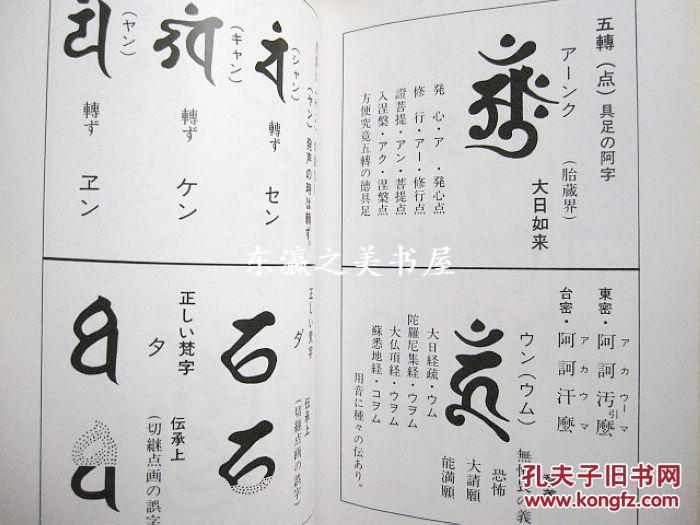 五轉(点)具足の阿字
アーンク
(胎蔵界)
大日如来
発心・ア・発心点
修行・アー・修行点
證菩提・アン・菩提点
入涅槃・アク・涅槃点
方便究竟五轉の徳具足
東密・阿訶汚引麼
アカウーマ
台密・阿訶汗麼
アカウマ
ウン(ウム)
恐怖
大請願
能満願
大日経疏・ウム
陀羅尼集経・ウヲム
大仏頂経・ウヲム
蘇悉地経・コヲム
用音に種々の伝あり。
(ヤン)発声の時は轉ず。
(シャン)
轉ず セン
(キャン)
轉ず ケン
(ヤン)
轉ず ヱン
正しい梵字 伝承上
ダ (切継点画の誤字)
正しい梵字 伝承上
タ (切継点画の誤字
东瀛之美书屋
孔夫子旧书网
www.kongfz.com